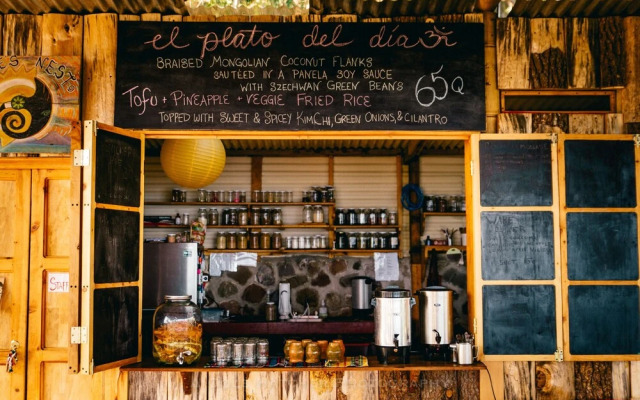 el plato del día
BRAISED MONGOLIAN COCONUT FLANKS
SAUTÉED IN A PANELA SOY SAUCE
WITH SZECHWAN GREEN BEANS
65Q
TOFU + PINEAPPLE + VEGGIE FRIED RICE
TOPPED WITH SWEET & SPICEY KIMCHI, GREEN ONIONS, & CILANTRO
NEST
STAFF